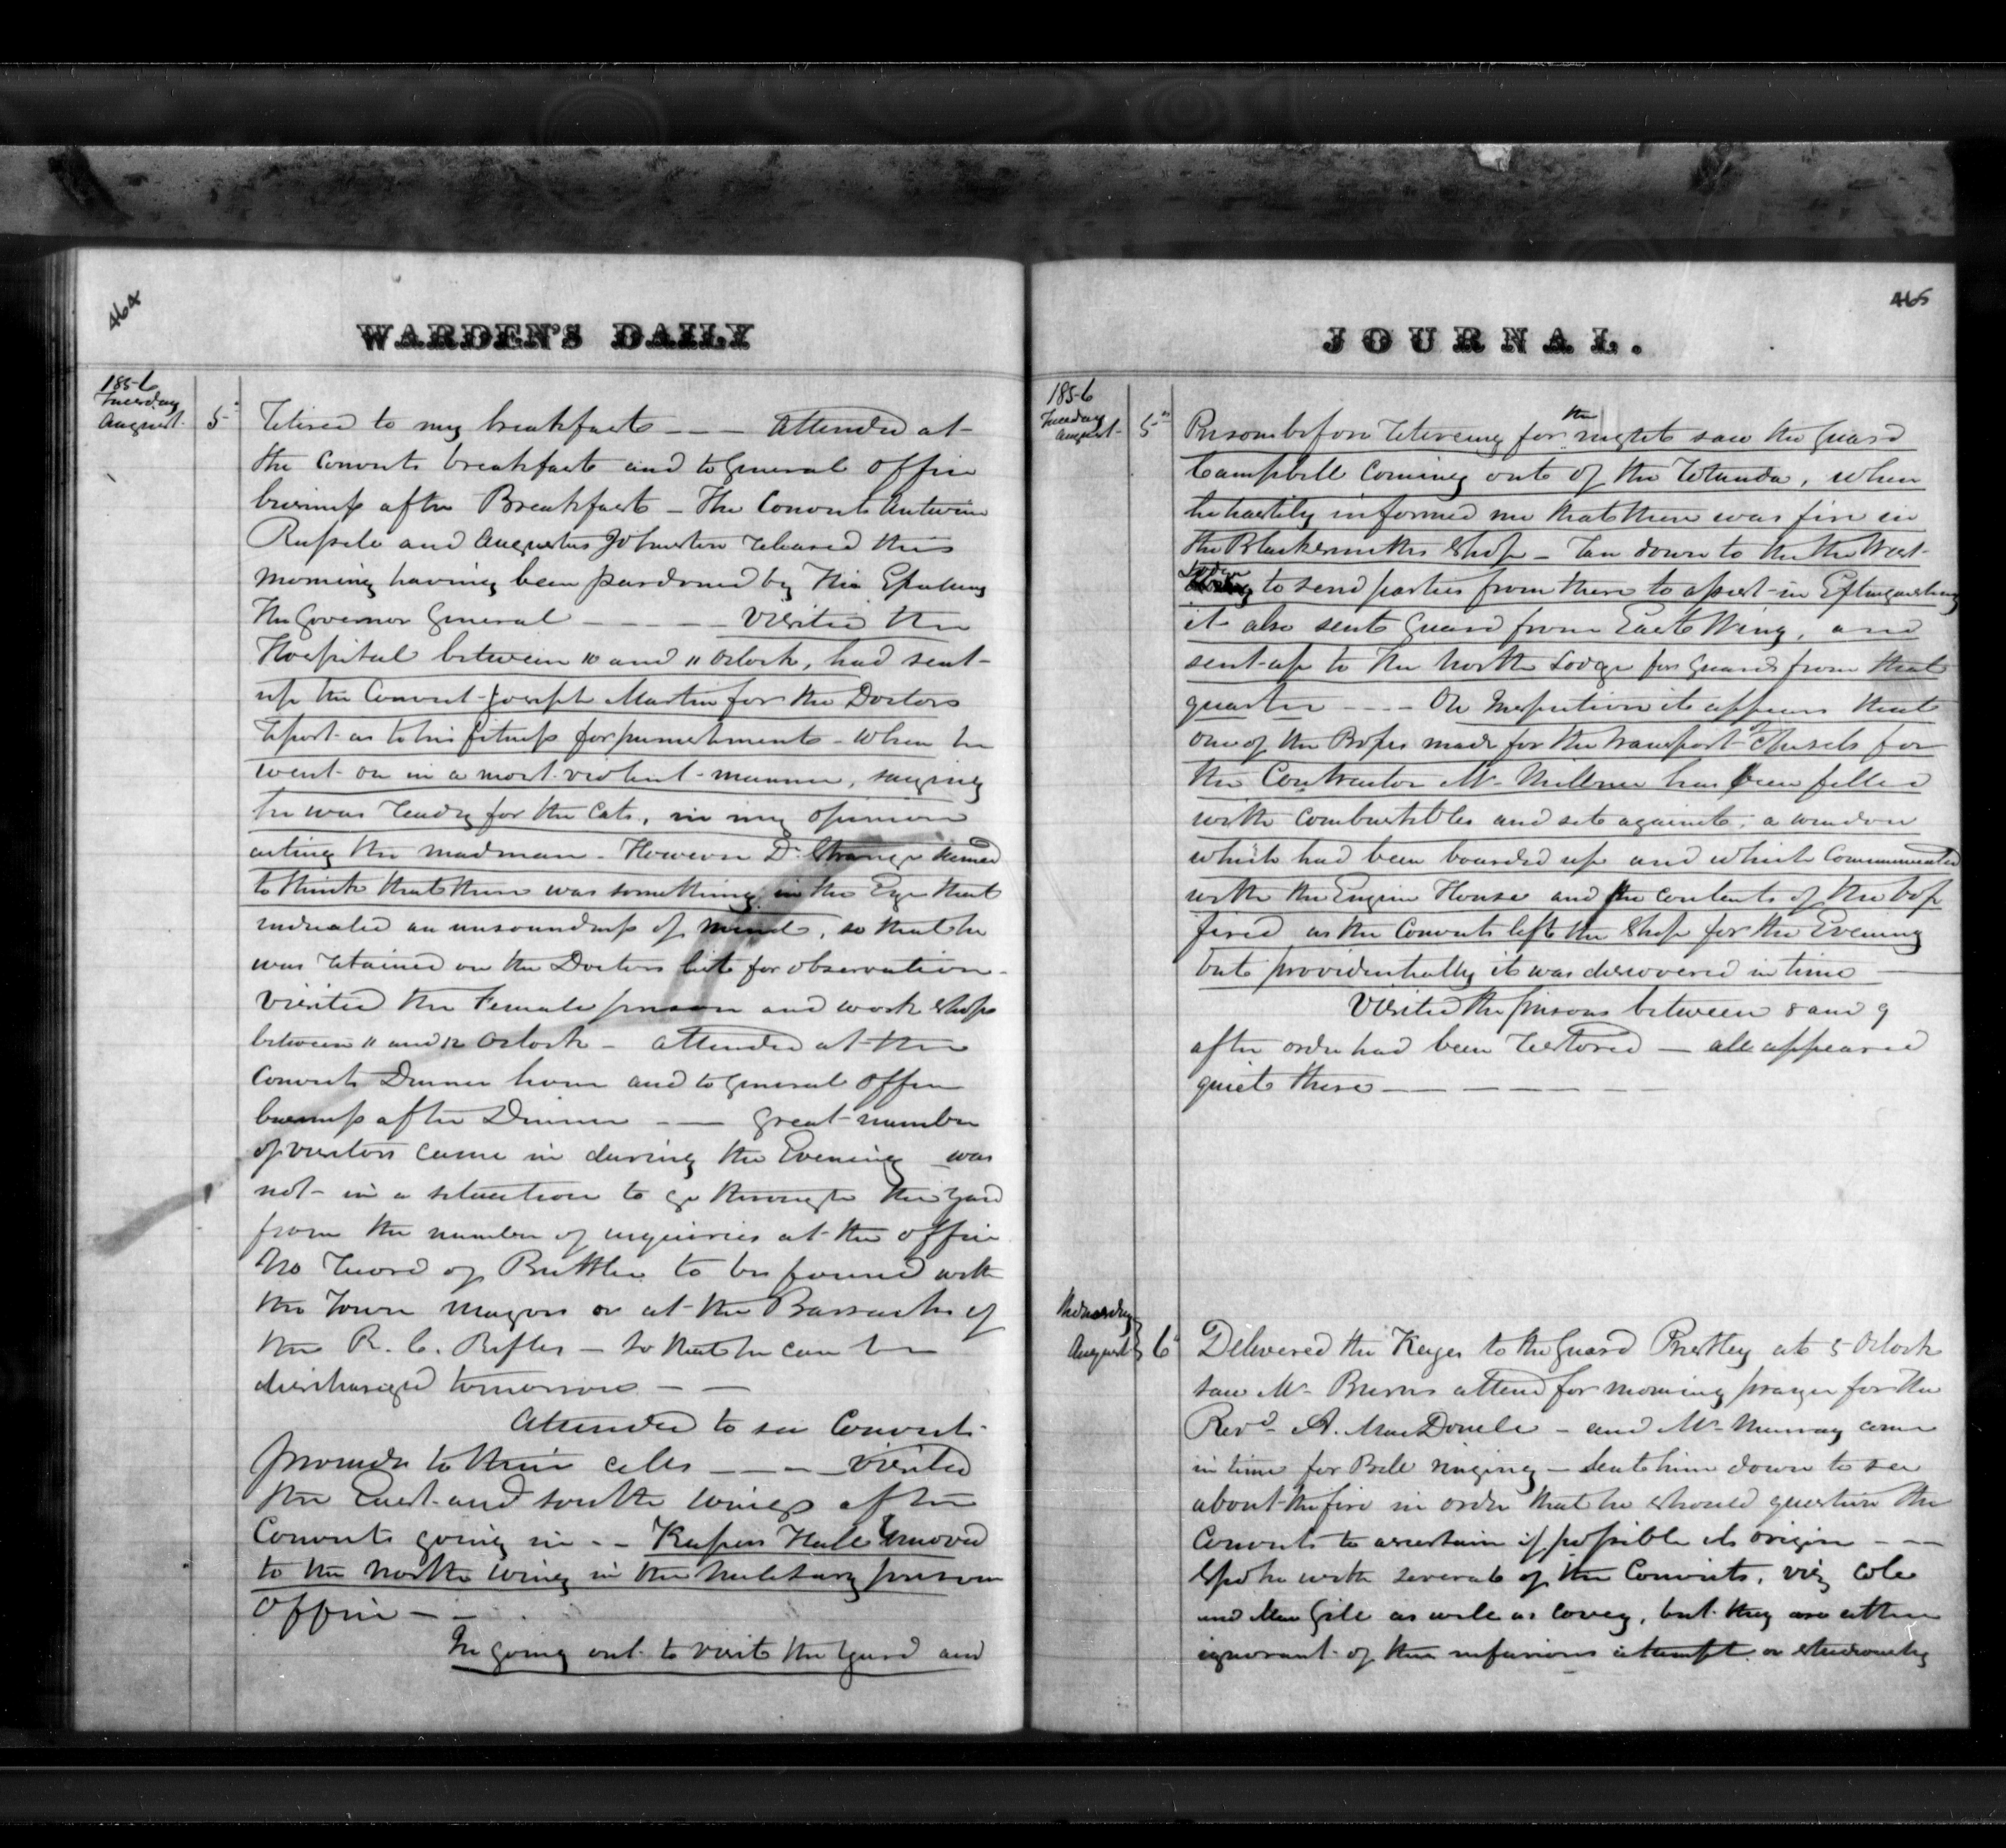 464
WARDEN'S DAILY
1856
Tuesday
August 5th
Retired to my breakfast — — Attended at
the Convicts breakfast and to General Office
business after Breakfast — The Convicts Antwine
and Augustus Johnston released this
morning having been pardoned by His Excellency
The Governor General — — — — Visited the
Hospital between 10 and 11 Oclock, had sent
up the Convict Joseph Martin for the Doctors
report as to his fitness for punishment — When he
went on in a most violent manner, saying
he was ready for the Cats, in my opinion
acting the madman — However Dr. Strange seemed
to think that there was something in the Eye that
indicated an unsoundness of mind, so that he
was retained on the Doctors list for observation —
Visited the Female prison and work shops
between 11 and 12 Oclock — attended at the
Convicts Dinner hour and to General Office
business after Dinner — — Great number
of visitors came in during the Evening was
not in a situation to go through the yard
from the number of inquiries at the office
No record of Buttler to be found with
the Town Mayors or at the Barracks of
the R. C. Rifles — so that he can be
discharged tomorrow — —
Attended to see Convicts
proceeds to their cells — — — Visited
the East and South wings after
Convicts going in — — Keepers Hall removed
to the North wing in the Military prison
Office — —
In going out to visit the Guard and
465
JOURNAL.
1856
Tuesday
August 5th
Prison before retireing for the night saw the Guard
Campbell coming out of the Rotunda, when
he hastily informed me that there was fire in
the Blacksmiths Shop — ran down to the the West
Lodge to send parties from there to assist in Extinguishing
it also sent Guard from East Wing, and
sent up to the North Lodge for Guards from that
quarter — — — — On Inspection it appears that
one of the Boxes made for the transport of Chisels for
the Contractor Mr. Millner has been filled
with combustibles and set against a window
which had been boarded up and which Communicated
with the Engine House and the contents of the box
fired as the Convicts left the Shop for the Evening
but providentially it was discovered in time —
Visited the prisons between 8 and 9
after order had been restored — all appeared
quiet there — — — — — —
Wednesday
August 6th
Delivered the Keyes to the Guard Prestley at 5 Oclock
saw Mr. Burns attend for morning prayer for the
Revd. A. MacDonell — and Mr. Murray came
in time for Bell ringing — sent him down to see
about the fire in order that he should question the
Convicts to ascertain if possible its origin — —
Spoke with several of the Convicts, viz Cole
and as well as Covey, but they are either
ignorant of the nefarious attempt or studiously